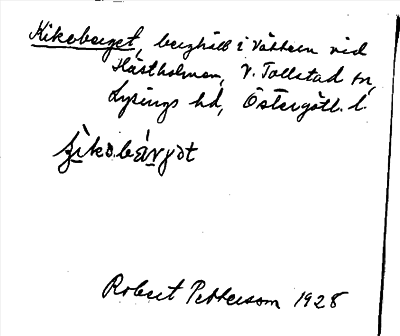 Kikeberget, berghäll i Vättern vid
Hästholmen, V. Tollstad sn,
Lysings hd, Östergötl. l.
Robert Pettersson 1928